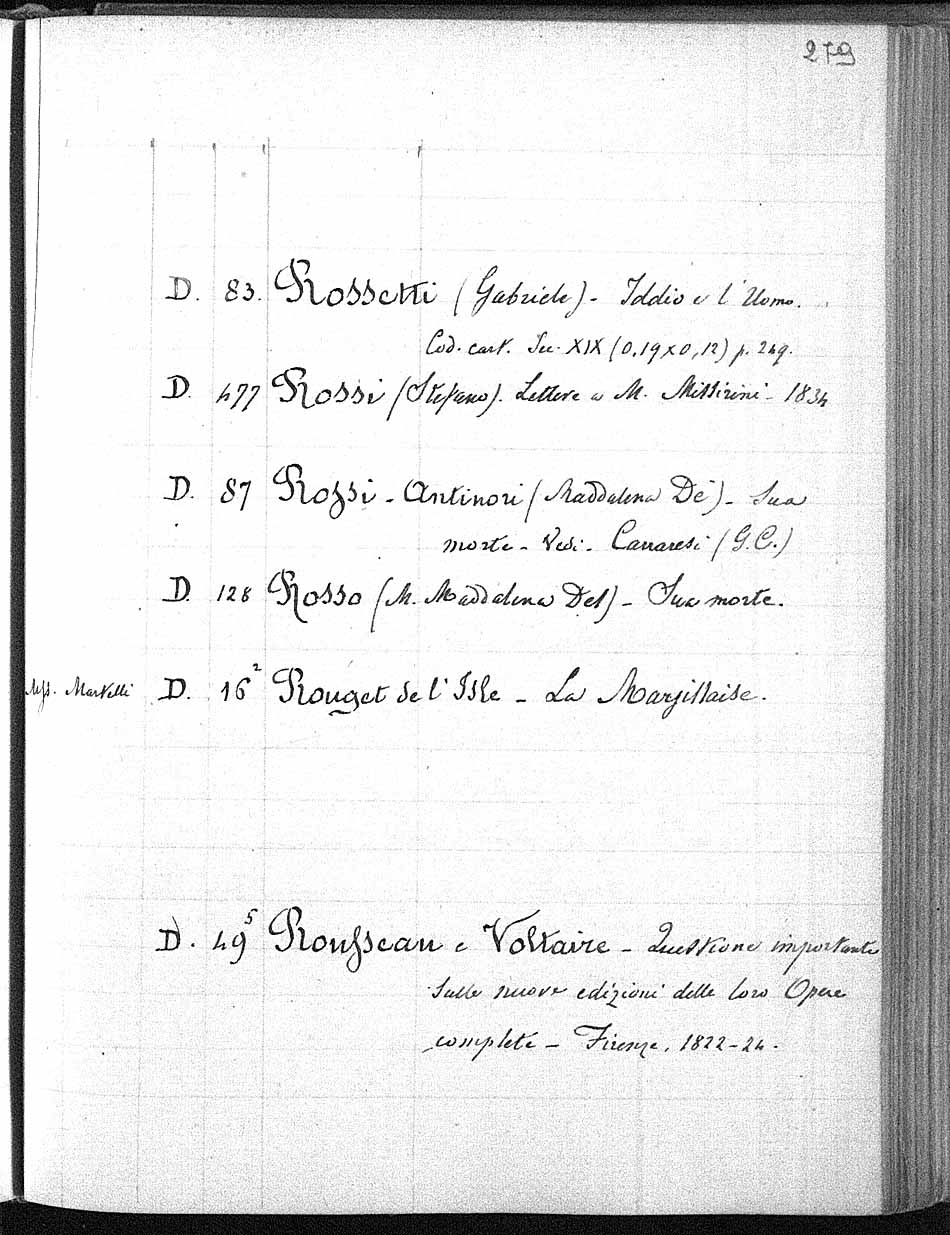 279
D. 83. Rossetti (Gabriele) - Iddio e l'Uomo.
Cod. cart. Sec. XIX (0,19x0,12) p. 249.
D. 477 Rossi (Stefano). Lettere a M. Missirini - 1834
D. 87 Rossi - Antinori (Maddalena De') - Sua
morte - Vedi - Carraresi (G.C.)
D. 128 Rosso (M. Maddalena Del) - Sua morte.
Mss. Martelli D. 16² Rouget de l'Isle - La Marsillaise.
D. 49⁵ Rousseau e Voltaire - Questione importante
sulle nuove edizioni delle loro Opere
complete - Firenze, 1822-24.